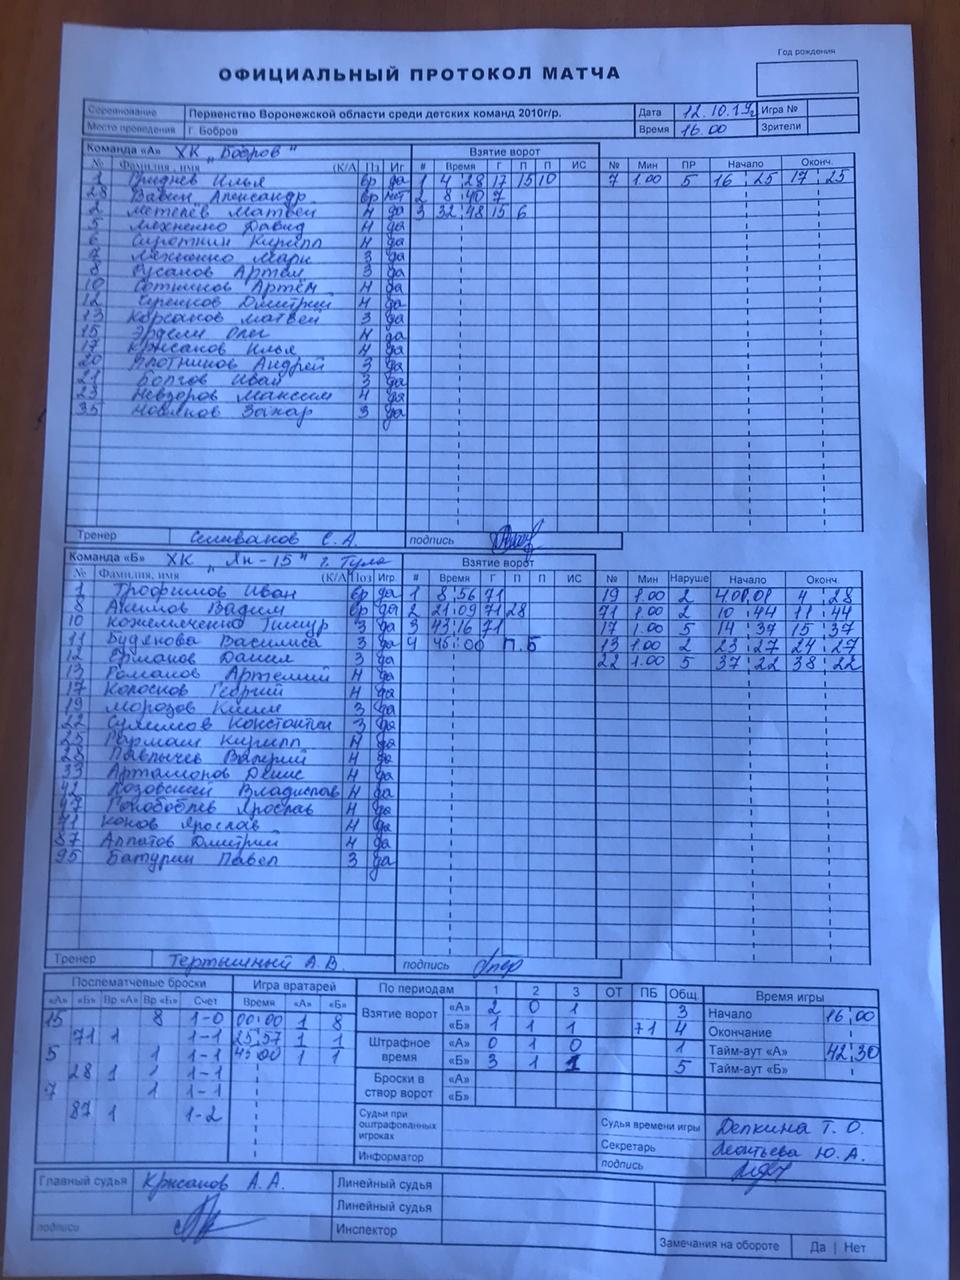 Год рождения
ОФИЦИАЛЬНЫЙ ПРОТОКОЛ МАТЧА
Соревнование Первенство Воронежской области среди детских команд 2010г/р. Дата 12.10.19г Игра №
Место проведения Г. Бобров Время 16.00 Зрители
Команда «А» ХК „Бобров" Взятие ворот
№ Фамилия, имя (К/А) Пз Иг # Время Г П П ИС № Мин ПР Начало Оконч.
1 Гриднев Илья вр да 1 4 28 17 15 10 7 1.00 5 16 25 17 25
28 Вавин Александр вр нет 2 8 40 7
2 Метелёв Матвей Н да 3 32 48 15 6
5 Ляхненко Давид Н да
6 Сироткин Кирилл Н да
7 Ляхненко Марк З да
8 Русанов Артём З да
10 Сотников Артём Н да
12 Черенков Дмитрий Н да
13 Корсаков Матвей З да
15 Эрдели Олег Н да
17 Крысанов Илья Н да
20 Плотников Андрей З да
21 Болгов Иван З да
23 Невзоров Максим Н да
35 Новиков Захар З да
Тренер Селиванов С. А. подпись
Команда «Б» ХК „Ян-15" г. Тула Взятие ворот
№ Фамилия, имя (К/А) Поз Игр # Время Г П П ИС № Мин Наруше Начало Оконч.
1 Трофимов Иван вр да 1 8 56 71 19 1.00 2 4 28
8 Акимов Вадим вр да 2 21 09 71 28 71 1.00 2 10 44 11 44
10 Кожемяченко Тимур З да 3 43 16 71 17 1.00 5 14 37 15 37
11 Будякова Василиса З да 4 45 00 П.Б 13 1.00 2 23 27 24 27
12 Ермаков Данил З да 22 1.00 5 37 22 38 22
13 Романов Артемий Н да
17 Колосков Георгий Н да
19 Морозов З да
22 Сулимов Константин З да
25 Гармаш Кирилл Н да
28 Павлычев Валерий Н да
33 Артамонов Денис Н да
42 Козовский Владислав Н да
47 Ярослав Н да
71 Конов Ярослав Н да
87 Алпатов Дмитрий Н да
95 Батурин Павел З да
Тренер Тертышный А.В. подпись
Послематчевые броски Игра вратарей По периодам 1 2 3 ОТ ПБ Общ. Время игры
«А» «Б» Вр «А» Вр «Б» Счет Время «А» «Б» Взятие ворот «А» 2 0 1 3 Начало 16 00
15 8 1-0 00:00 1 8 «Б» 1 1 1 71 4 Окончание
71 1 1-1 25:57 1 1 Штрафное время «А» 0 1 0 1 Тайм-аут «А» 42 30
5 1 1-1 45 00 1 1 «Б» 3 1 1 5 Тайм-аут «Б»
28 1 1-1 Броски в створ ворот «А»
7 1 1-1 «Б»
87 1 1-2 Судьи при оштрафованных игроках Судья времени игры Депкина Т. О.
Секретарь Леонтьева Ю. А.
Информатор подпись
Главный судья Крысанов А. А. Линейный судья
Линейный судья
подписи Инспектор Замечания на обороте Да | Нет